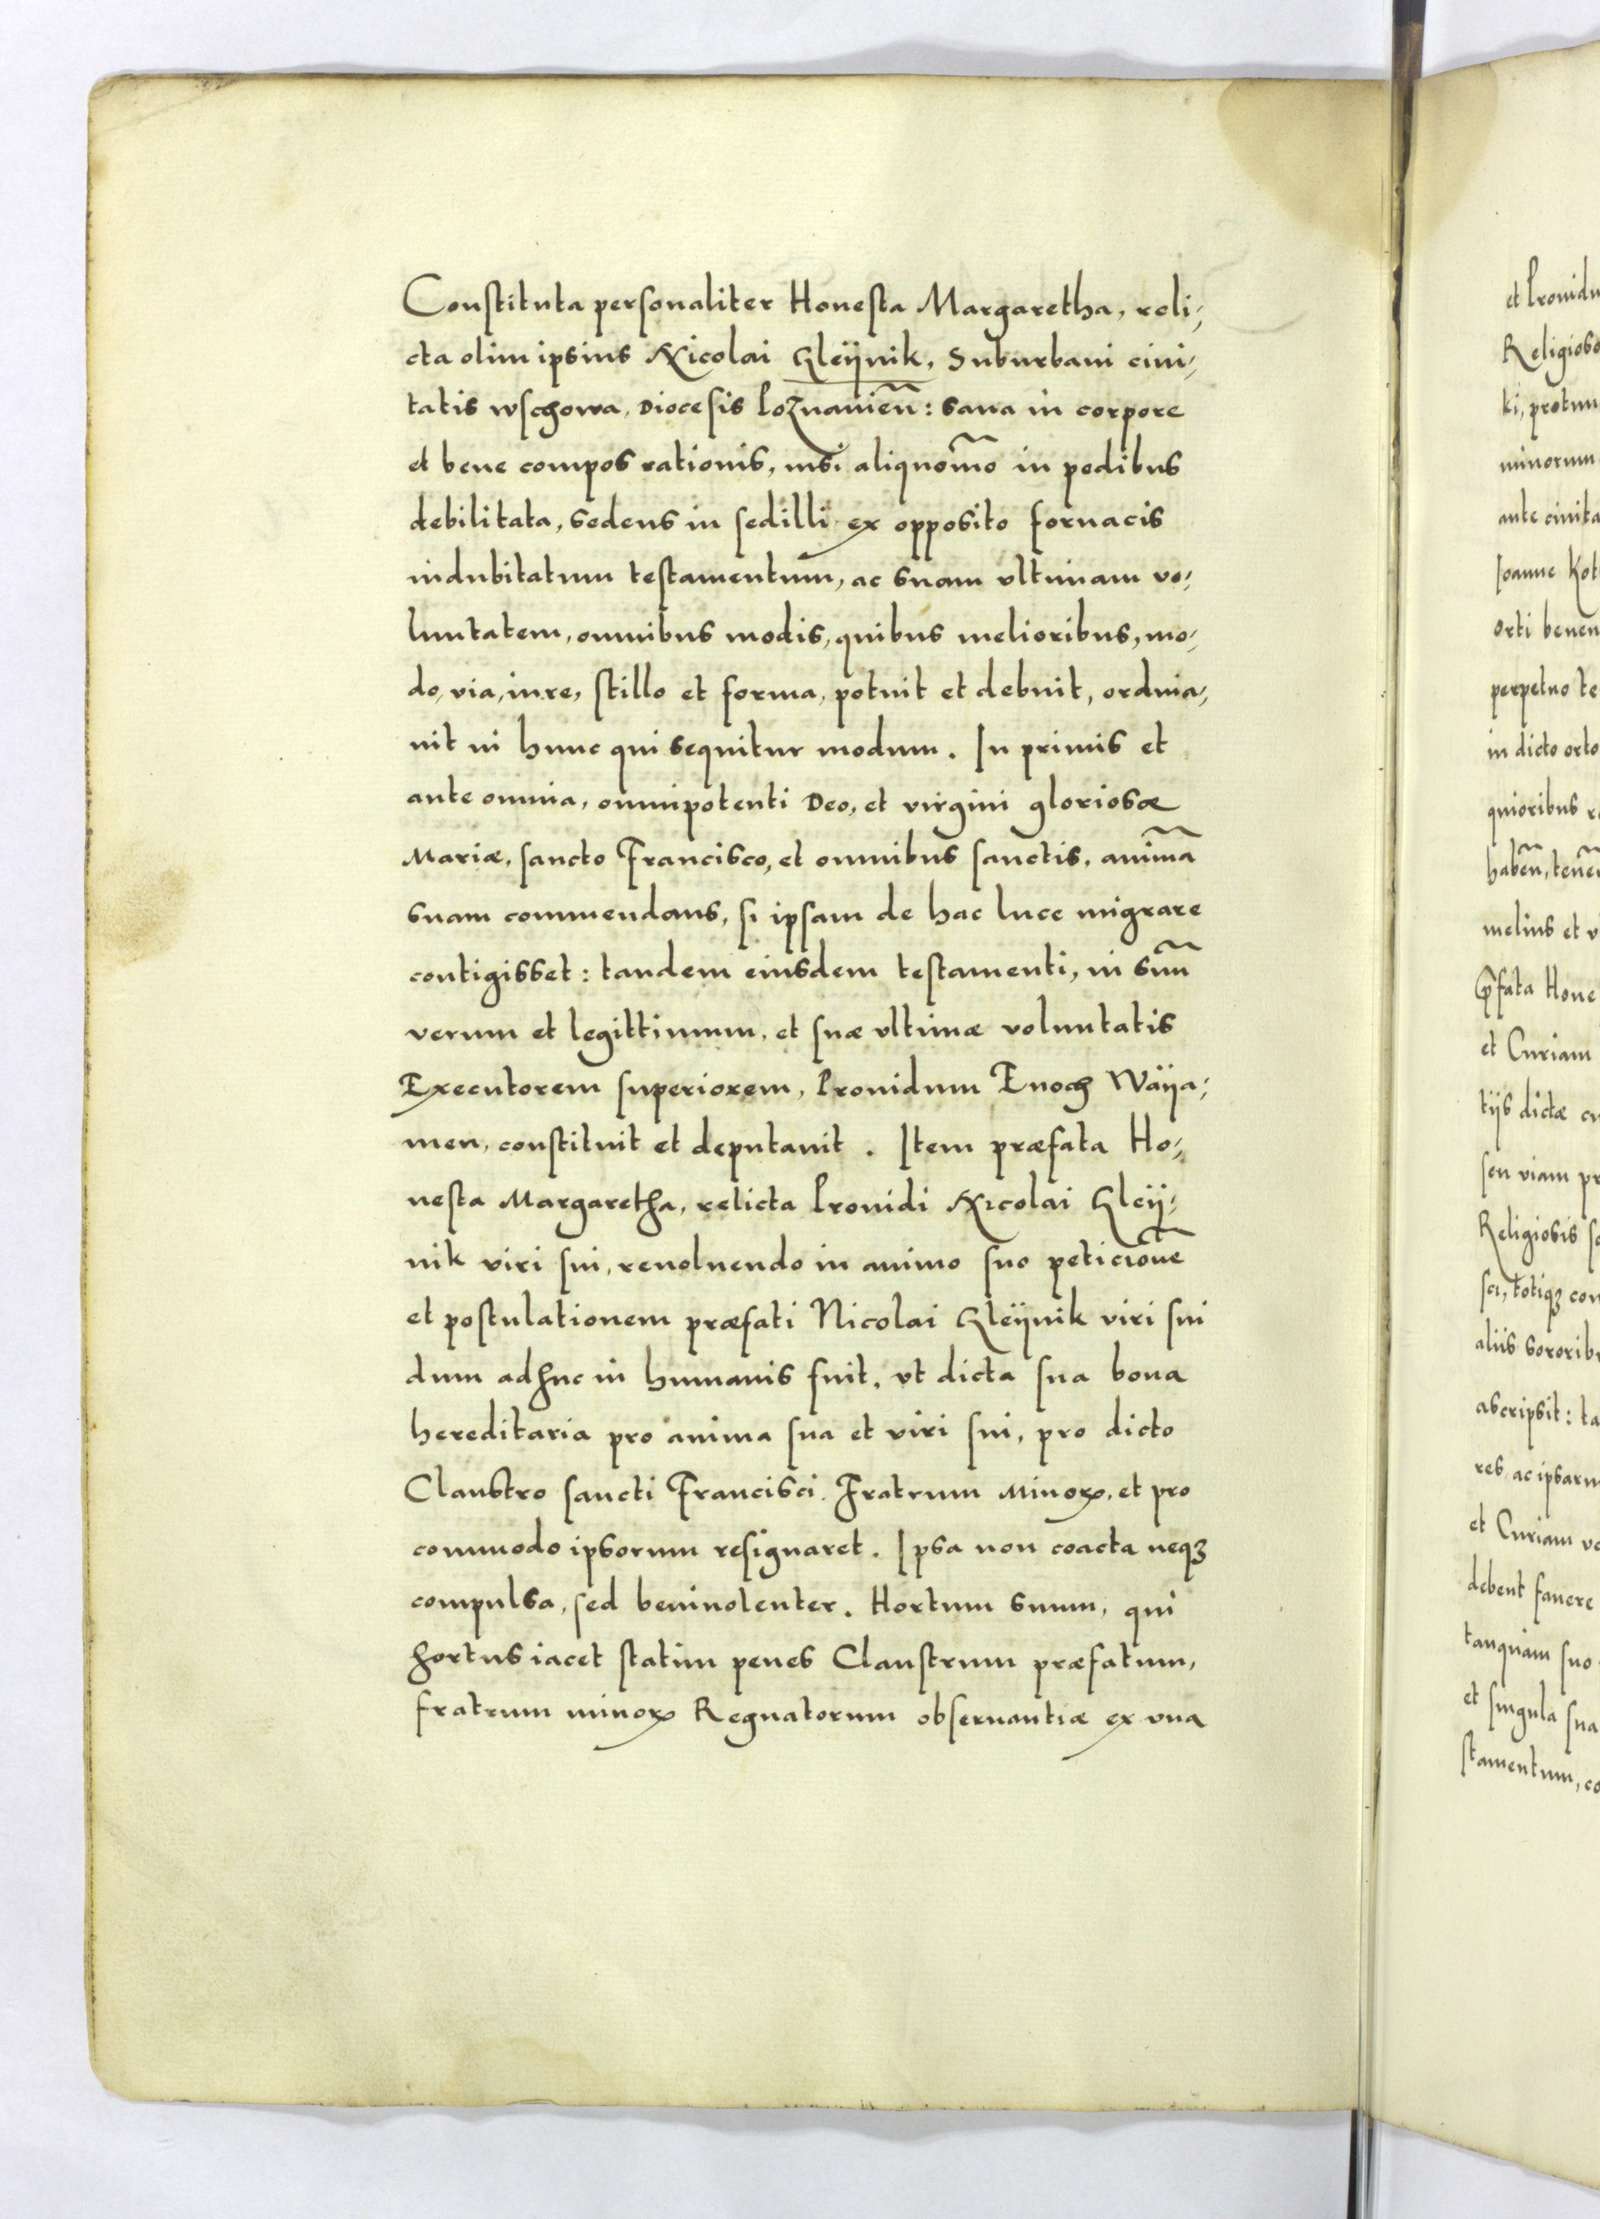 Constituta personaliter Honesta Margaretha, reli,
cta olim ipsius Nicolai Gleÿnik, Suburbani ciui,
tatis wschowa, Diocesis Poznanieñ: sana in corpore
et bene compos rationis, nisi aliquom̃o in pedibus
debilitata, sedens in sedilli ex opposito fornacis
indubitatum testamentum, ac suam vltimam vo,
luntatem, omnibus modis, quibus melioribus, mo,
do, via, iure, stillo et forma, potuit et debuit, ordina,
uit in hunc qui sequitur modum. In primis et
ante omnia, omnipotenti Deo, et virgini gloriosæ
Mariæ, sancto Francisco, et omnibus sanctis, anim̃a
suam commendans, si ipsam de hac luce migrare
contigisset: tandem eiusdem testamenti, in suũ
verum et legittimum, et suæ vltimæ voluntatis
Executorem superiorem, Prouidum Enoch Waÿa,
men, constituit et deputauit. Item præfata Ho,
nesta Margaretha, relicta Prouidi Nicolai Gleÿ,
nik viri sui, reuoluendo in animo suo peticionẽ
et postulationem præfati Nicolai Gleÿnik viri sui
dum adhuc in humanis fuit, vt dicta sua bona
hereditaria pro anima sua et viri sui, pro dicto
Claustro sancti Francisci Fratrum Minoꝝ, et pro
commodo ipsorum resignaret. Ipsa non coacta neqꝫ
compulsa, sed beniuolenter. Hortum suum, qui
hortus iacet statim penes Claustrum præfatum,
fratrum minoꝝ Regnatorum obseruantiæ ex vna
et Prouidu
Religioso
ki, protun
minorum
ante ciuita
Ioanne Kot
orti benen
perpetuo te
in dicto orto
quioribus r
habeñ, teneñ
melius et v
p̃fata Hone
et Curiam
tijs dictæ cu
seu viam pr
Religiosis s
sci, totiqꝫ con
aliis sororibu
ascripsit: ta
res ac ipsaru
et Curiam vo
debent fauere
tanquam suo
et singula sua
stamentum, co